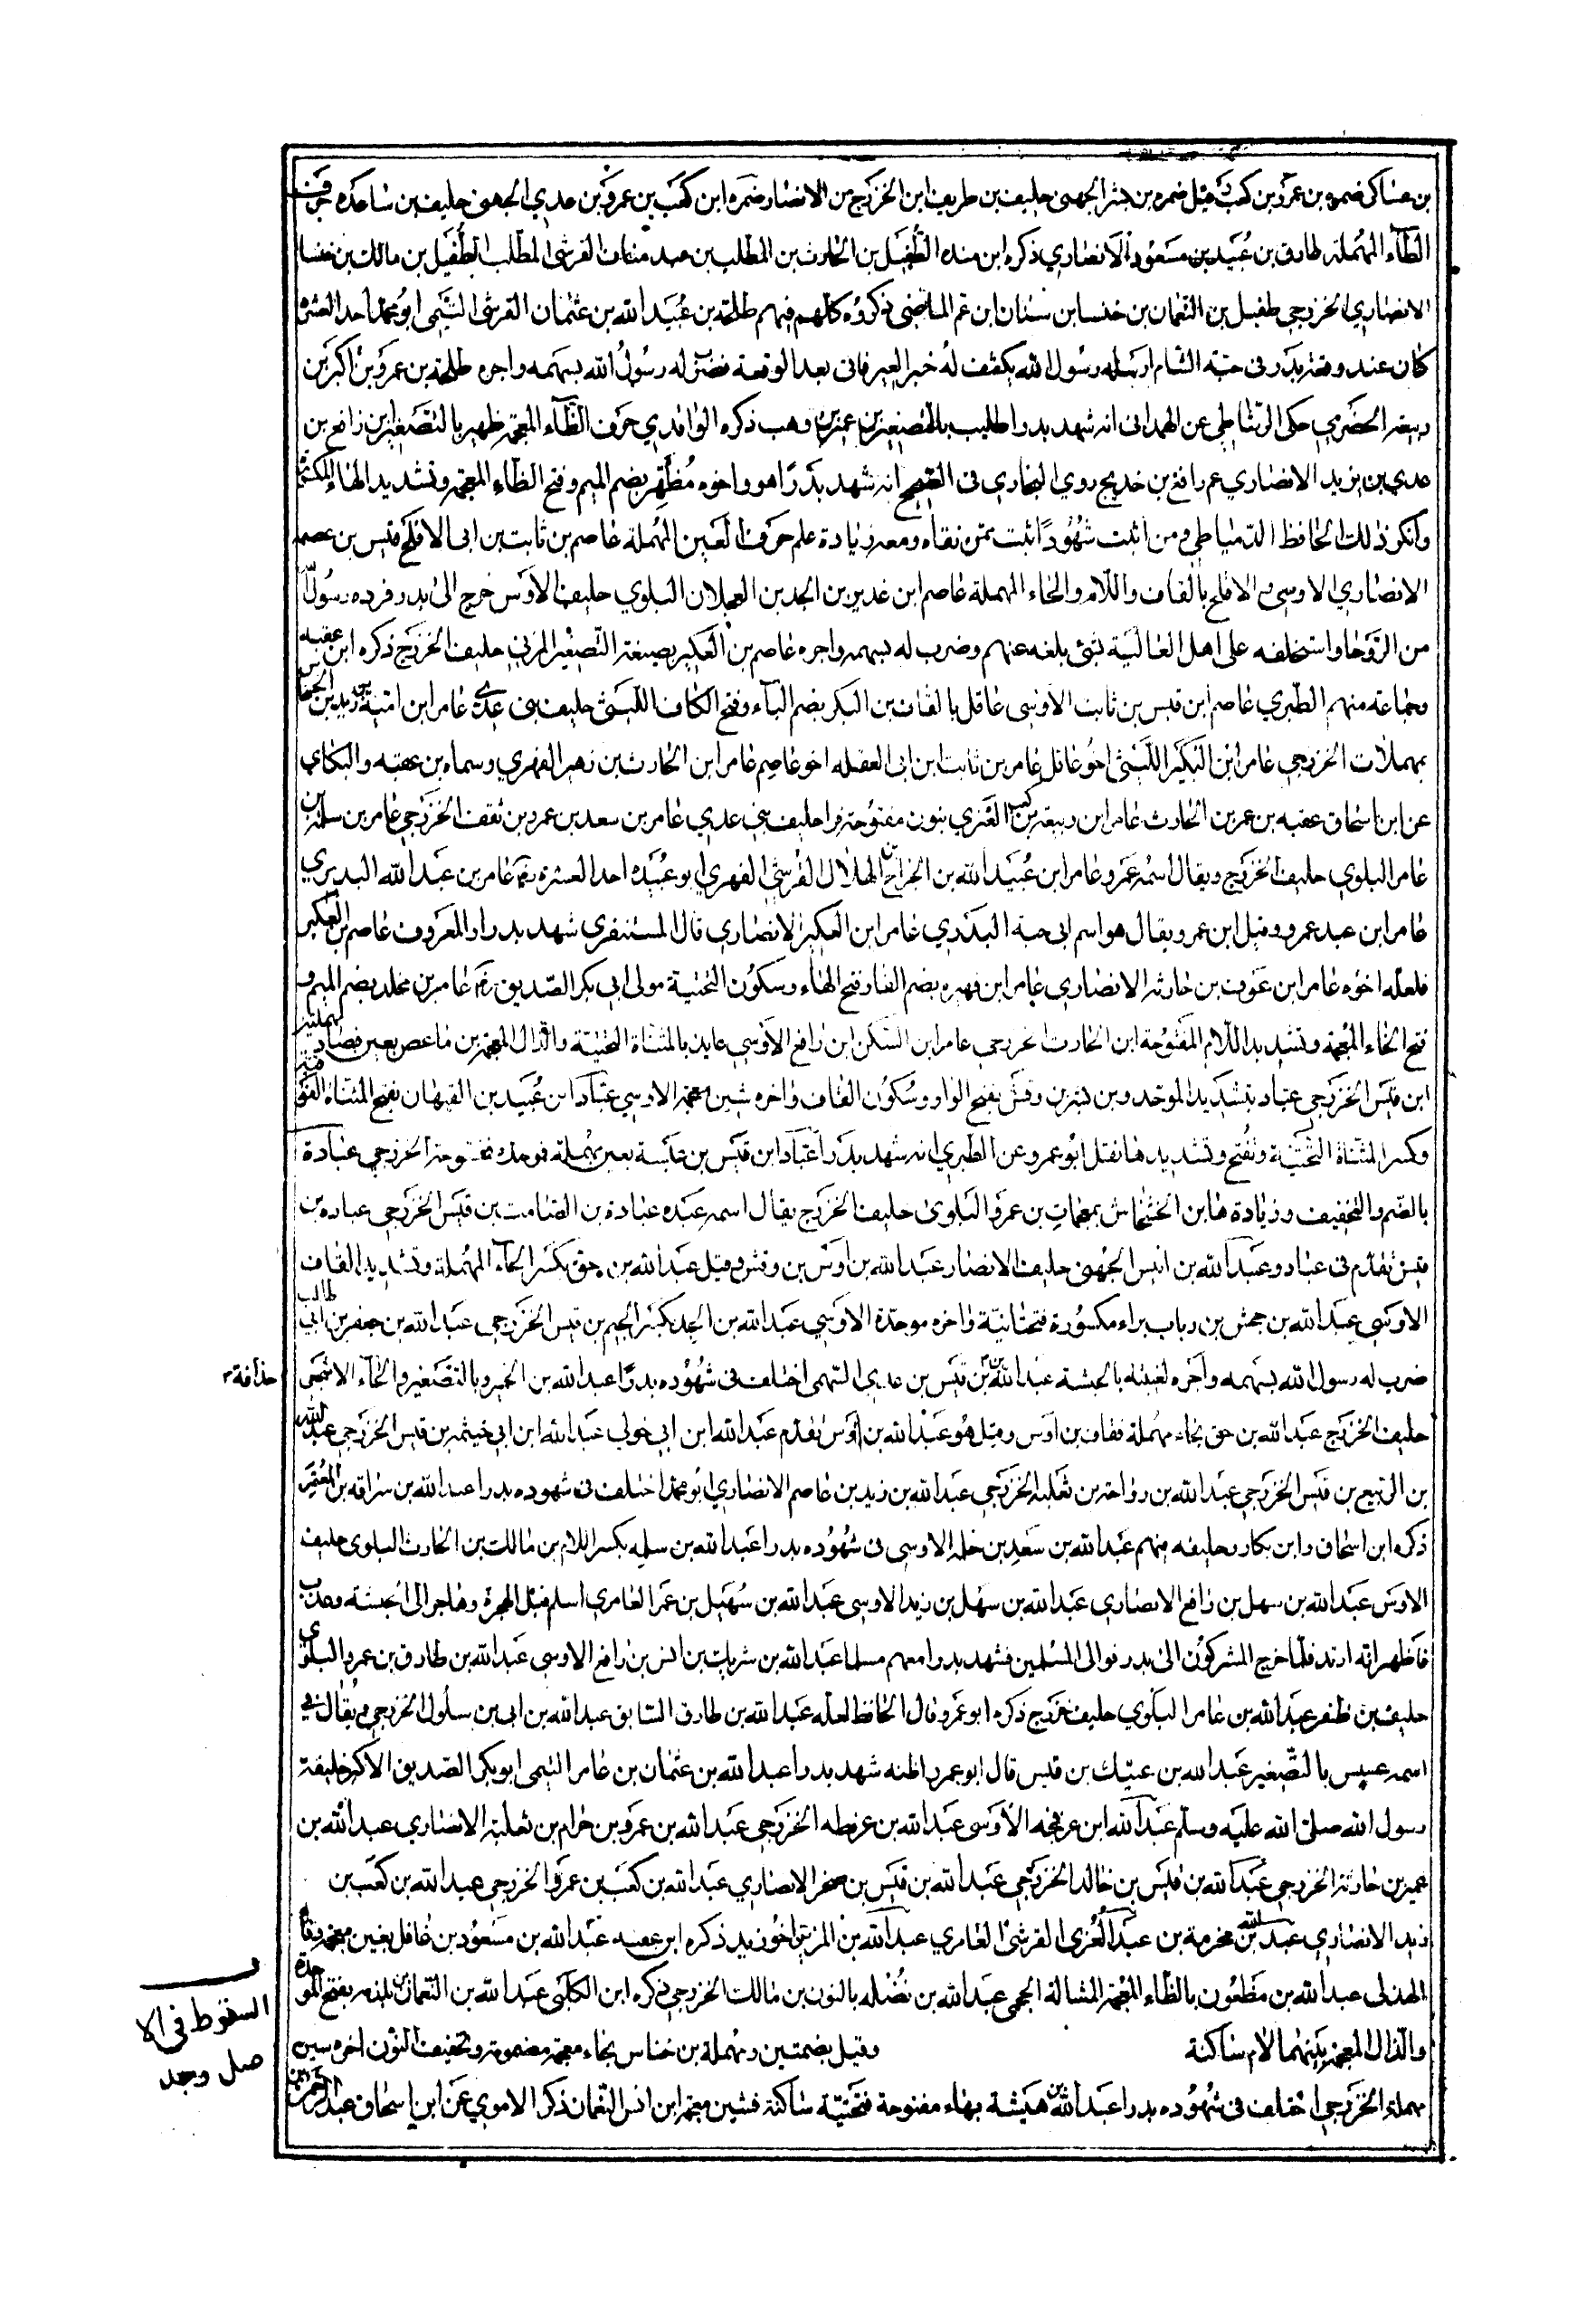 بن عساكى ضمره بن عمرو بن كعب وقيل ضمره بن بشر الجهنى حليف بن طريف ابن الخزرج من الانصار ضمره ابن كعب بن عمرو بن عدي الجهنى حليف بن ساعده حرف
الطآء المهملة طارق بن عبيد بن مسعود الانصاري ذكره ابن منده الطفيل بن الحارث بن المطلب بن عبد مناف القرشى المطلب الطفيل بن مالك بن خنسا
الانصاري الخزرجي طفيل بن النعمان بن خنسا ابن سنان ابن عم الماضى ذكروه كلهم فيهم طلحة بن عبيد الله بن عثمان القرشى التيمى ابو محمد احد العشرة
كان عند وقعة بدر فى جهة الشام ارسله رسول الله يكشف له خبر العير فاتى بعد الوقعة فضرب له رسول الله بسهمه واجره طلحة بن عمرو بن اكبر بن
ربيعة الحضرمي حكى الرشاطي عن الهمدانى انه شهد بدرا طليب بالتصغير بن عمير بن وهب ذكره الواقدي حرف الظآء المعجمة ظهير بالتصغير بن رافع بن
عدي بن يزيد الانصاري عم رافع بن خديج روي البخاري فى الصحيح انه شهد بدرًا هو واخوه مُظَهِّر بضم الميم وفتح الظاء المعجمة وتشديد الهاء المكسورة
وانكر ذلك الحافظ الدمياطي ومن اثبت شهودًا اثبت ممن نفاه ومعه زيادة علم حرف العين المهملة عاصم بن ثابت بن ابى الافلح قيس بن عصمه
الانصاري الاوسى والافلح بالقاف واللام والحاء المهملة عاصم ابن عدي بن الجد بن العجلان البلوي حليف الاوس خرج الى بدر فرده رسول الله
من الروحا واستخلفه على اهل العالية بشئ بلغه عنهم وضرب له بسهمه واجره عاصم بن العكير بصيغة التصغير المزني حليف الخزرج ذكره ابن عقبه
وجماعة منهم الطبري عاصم ابن قيس بن ثابت الاوسى عاقل بالقاف بن البكير بضم البآء وفتح الكاف الليثى حليف بنى عدي عامر ابن امية بن زيد بن الحسحاس
بمهملات الخزرجي عامر ابن البكير الليثى اخو عاقل عامر بن ثابت ابن ابى الافلح اخو عاصم عامر ابن الحارث بن زهير الفهري وسماه بن عقبه والبكاي
عن ابن اسحاق عقبه بن عمر بن الحارث عامر ابن ربيعة بن كعب العنزي بنون مفتوحة فزا حليف بني عدي عامر بن سعد بن عمرو بن ثقف الخزرجي عامر بن سلمة بن
عامر البلوي حليف الخزرج ويقال اسمه عمرو عامر ابن عبيد الله بن الجراح بن الهلال القرشي الفهري ابو عبيده احد العشرة رضي عامر بن عبد الله البديري
عامر ابن عبد عمرو وقيل ابن عمر ويقال هو اسم ابى حبة البدري عامر ابن العكير الانصاري قال المستغفري شهد بدرا والمعروف عاصم بن العكير
فلعله اخوه عامر ابن عوف بن حارثه الانصاري عامر ابن فهيره بضم الفا وفتح الهاء وسكون التحتية مولى ابي بكر الصديق رضي عامر بن مخلد بضم الميم و
فتح الخاء المعجمة وتشديد اللام المفتوحة ابن الحارث الخزرجي عامر ابن السكن ابن رافع الاوسي عايذ بالمثناة التحتية والذال المعجمة بن ماعص بعين فصاد مهملتين
ابن قيس الخزرجي عباد بتشديد الموحده بن بشر بن وقش بفتح الواو وسكون القاف واخره شين معجمة الاوسي عباد ابن عبيد بن التيهان بفتح المثناة الفوقية
وكسر المثناة التحتية وتفتح وتشديدها نقل ابو عمرو عن الطبري انه شهد بدرا عباد ابن قيس بن عبسة بعين مهملة فموحدة مفتوحة الخزرجي عبادة
بالضم والتخفيف وزيادة ها بن الخشخاش بمعجمات بن عمرو البلوى حليف الخزرج يقال اسمه عبده عبادة بن الصامت بن قيس الخزرجي عباده بن
قيس تقدم فى عباد وعبد الله بن انيس الجهنى حليف الانصار عبد الله بن اوس بن وقش وقيل عبد الله بن حق بكسر الحآء المهملة وتشديد القاف
الاوسي عبد الله بن جحش بن رباب براء مكسورة فتحتانية واخره موحدة الاوسي عبد الله بن الجد بكسر الجيم بن قيس الخزرجي عبد الله بن جعفر بن ابي طالب
ضرب له رسول الله بسهمه واجره لغيبته بالحبشة عبد الله بن حذافة بن قيس بن عدي السهمى اختلف فى شهوده بدرًا عبد الله بن الحمير بالتصغير والحآء الاشجعى
حليف الخزرج عبد الله بن حق بحاء مهملة فقاف بن اوس وقيل هو عبد الله بن اوس تقدم عبد الله ابن ابي خولي عبد الله ابن ابي خيثمه بن قيس الخزرجي عبد الله
بن الربيع بن قيس الخزرجي عبد الله بن رواحة بن ثعلبة الخزرجي عبد الله بن زيد بن عاصم الانصاري ابو محمد اختلف فى شهوده بدرا عبد الله بن سراقه بن المعتمر
ذكره ابن اسحاق وابن بكار وحليفه منهم عبد الله بن سعد بن خيثمه الاوسى فى شهوده بدرا عبد الله بن سلمه بكسر اللام بن مالك بن الحارث البلوى حليف
الاوس عبد الله بن سهل بن رافع الانصاري عبد الله بن سهل بن زيد الاوسى عبد الله بن سهيل بن عمر العامري اسلم قبل الهجرة وهاجر الى الحبشه وعذب
فاظهر انه ارتد فلما خرج المشركون الى بدر فر الى المسلمين فشهد بدرا معهم مسلما عبد الله بن شريك بن انس بن رافع الاوسى عبد الله بن طارق بن عمرو البلوي
حليف بن ظفر عبد الله بن عامر البلوي حليف خزرج ذكره ابو عمرو قال الحافظ لعله عبد الله بن طارق السابق عبد الله بن ابى بن سلول الخزرجي ويقال فى
اسمه عبيس بالتصغير عبد الله بن عتيك بن قيس قال ابو عمرو اظنه شهد بدرا عبد الله بن عثمان بن عامر التيمى ابو بكر الصديق الاكبر خليفة
رسول الله صلى الله عليه وسلم عبد الله ابن عرفجه الاوسى عبد الله بن عرفطه الخزرجي عبد الله بن عمرو بن حرام بن ثعلبة الانصاري عبد الله بن
عمير بن حارثة الخزرجي عبد الله بن قيس بن خالد الخزرجي عبد الله بن قيس بن صخر الانصاري عبد الله بن كعب بن عمرو الخزرجي عبد الله بن كعب بن
زيد الانصاري عبد الله بن مخرمة بن عبد العزى القرشى العامري عبد الله بن المزين اخو زيد ذكره ابن عقبه عبد الله بن مسعود بن غافل بغين معجمة وفا
الهذلى عبد الله بن مظعون بالظاء المعجمة المشالة الجمحي عبد الله بن نضله بالنون بن مالك الخزرجي ذكره ابن الكلبى عبد الله بن النعمان بن بلذمه بفتح الموحدة
والذال المعجمة بينهما لام ساكنة وقيل بضمتين ومهملة بن خناس بخاء معجمة مضمومة وتخفيف النون اخره سين
مهملة الخزرجي اختلف فى شهوده بدرا عبد الله بن هيشة بهاء مفتوحة فتحتية ساكنة فشين معجمة ابن انس النعمان ذكر الاموي عن ابن اسحاق عبد الرحمن ابن
حذافة
السقوط فى الا
صل وجد